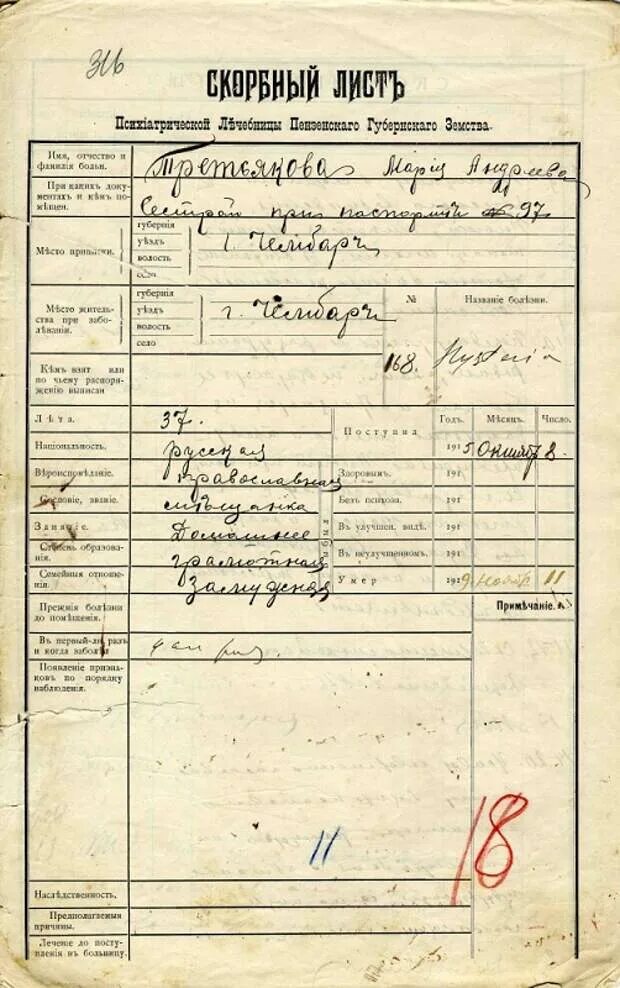 316
СКОРБНЫЙ ЛИСТЪ
Психіатрической Лѣчебницы Пензенскаго Губернскаго Земства.
Имя, отчество и фамилія больн.
Третьякова Марія Андреева
При какихъ документахъ и кѣмъ помѣщен.
Сестрой при паспортѣ № 97
Мѣсто приписки.
губернія
уѣздъ
волость
село
г. Чембаръ
Мѣсто жительства при заболѣваніи.
губернія
уѣздъ
волость
село
г. Чембаръ
№
168.
Названіе болѣзни.
Hysteria
Кѣмъ взят или по чьему распоряженію выписан
Лѣта.
37.
Поступил
Годъ. Мѣсяцъ. Число.
1915 Октябр 8.
Національность.
русская
Вѣроисповѣданіе.
православная
Здоровымъ. 191
Сословіе, званіе.
мѣщанка
Безъ психоза. 191
Занятіе.
Домашнее
Въ улучшен. видѣ. 191
Степень образованія.
грамотная
Въ неулучшенномъ. 191
Семейныя отношенія.
замужняя
Умер 1919 Ноябр 11
Выбыл
Прежнія болѣзни до помѣщенія.
Примѣчаніе.
Въ первый-ли разъ и когда заболѣл
Появленіе признаковъ по порядку наблюденія.
11
18
Наслѣдственность.
Предполагаемыя причины.
Лѣченіе до поступленія въ больницу.